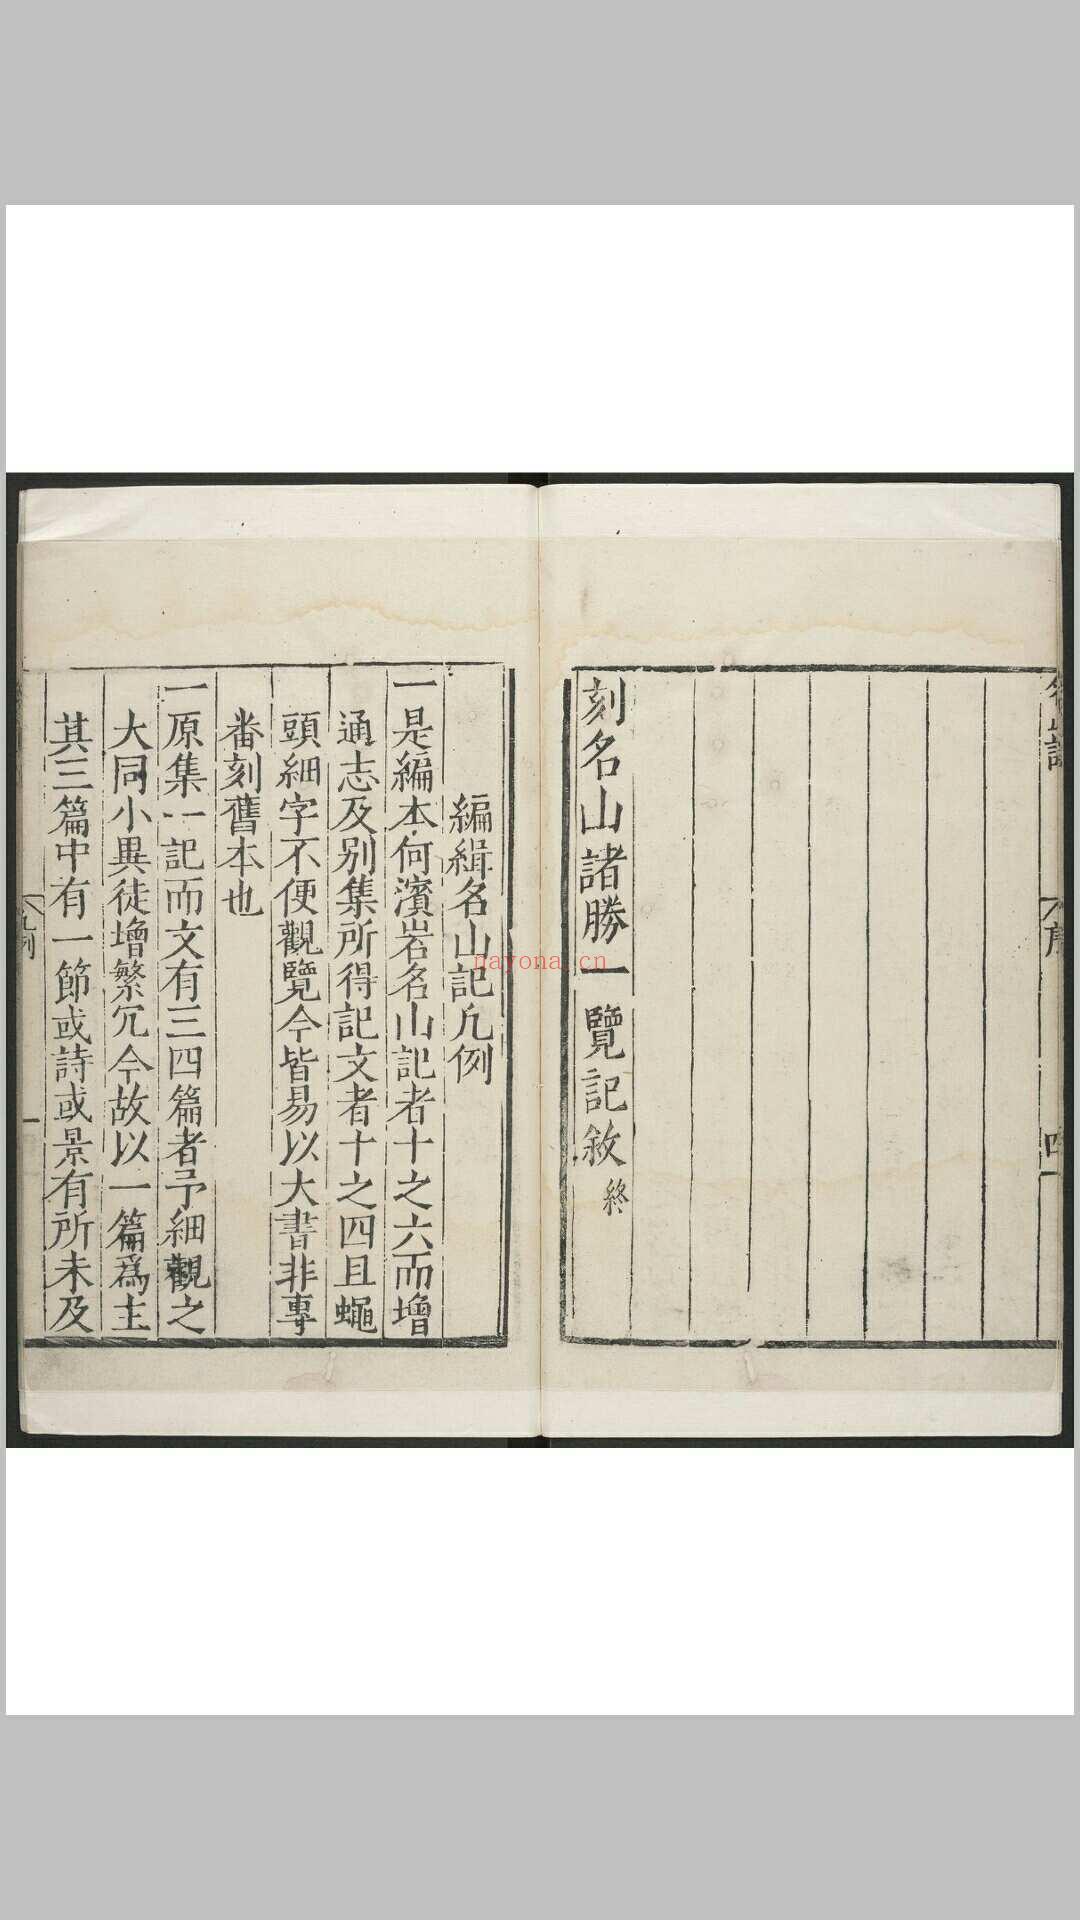 名山記
序
四
刻名山諸勝一覽記敘終
編緝名山記凡例
一是編本何濱岩名山記者十之六而增
通志及别集所得記文者十之四且蠅
頭細字不便觀覽今皆易以大書非專
番刻舊本也
一原集一記而文有三四篇者予細觀之
大同小異徒增繁冗今故以一篇爲主
其三篇中有一節或詩或景有所未及
凡例
一
nayona.cn